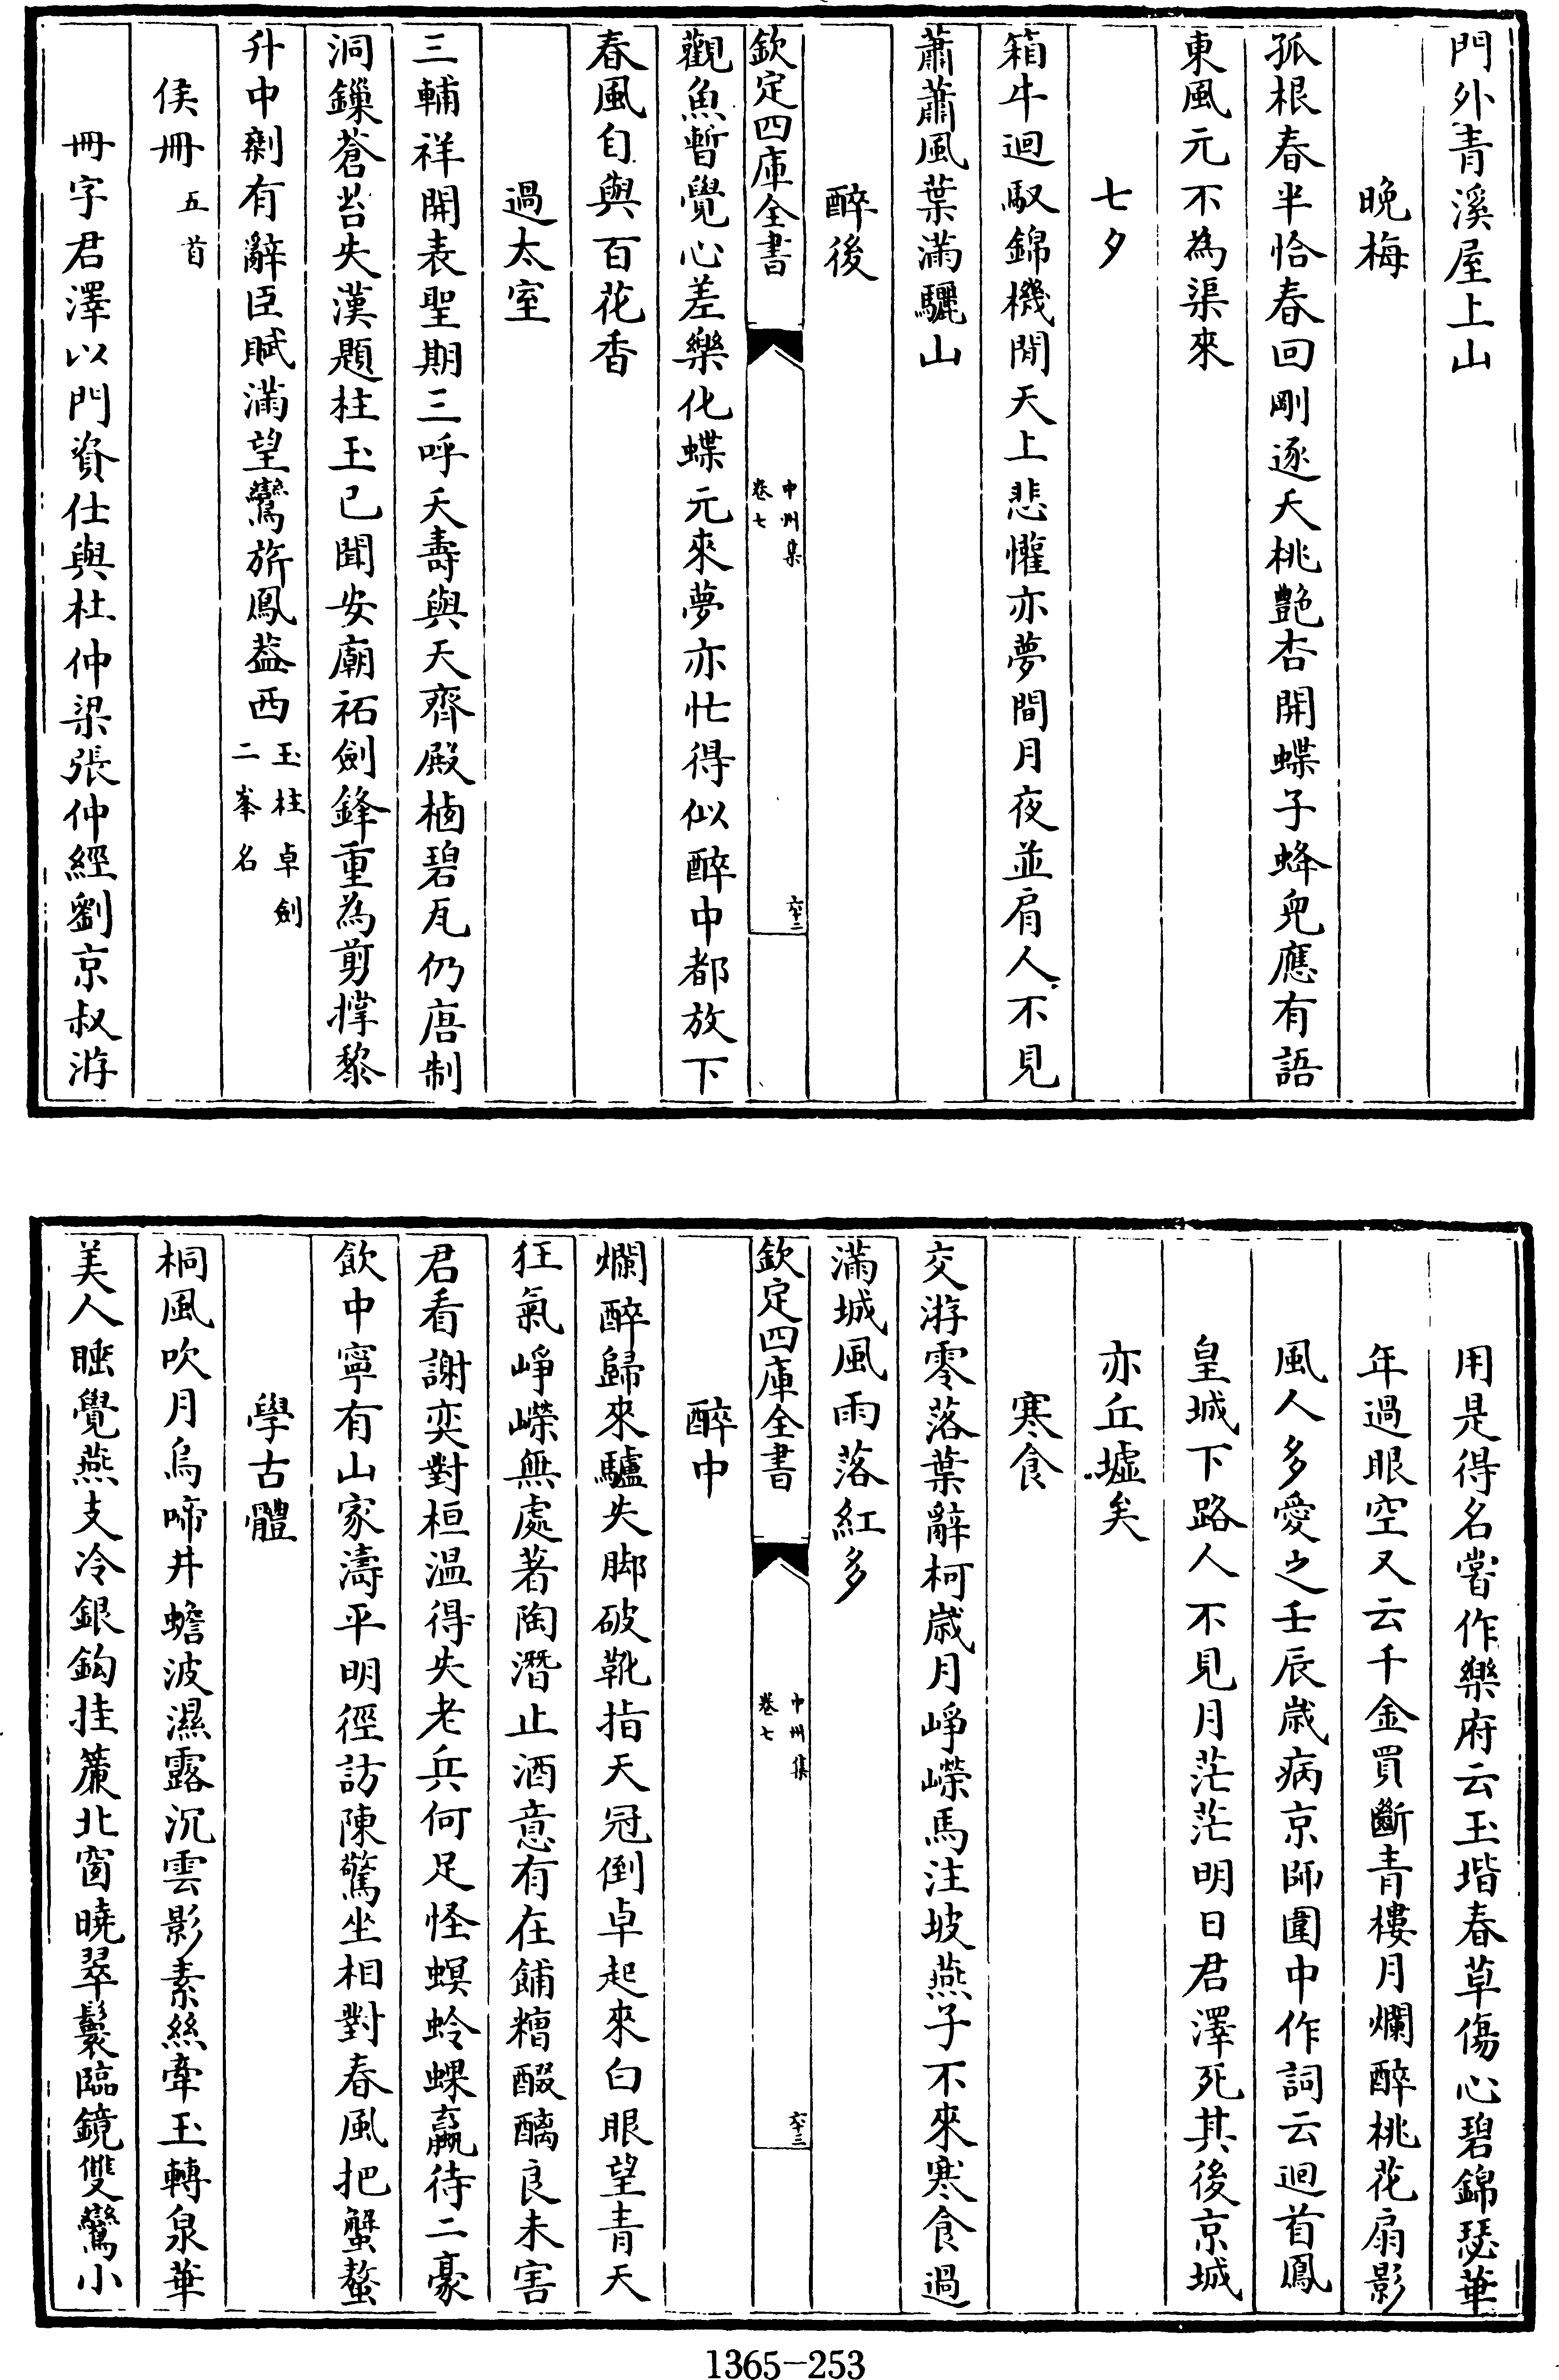 門外青溪屋上山
晚梅
孤根春半恰春回剛逐夭桃艷杏開蝶子蜂兒應有語
東風元不為渠來
七夕
箱牛迴馭錦機閒天上悲懽亦夢間月夜並肩人不見
蕭蕭風葉滿驪山
醉後
欽定四庫全書
中州集
卷七
六十二
觀魚暫覺心差樂化蝶元來夢亦忙得似醉中都放下
春風自與百花香
過太室
三輔祥開表聖期三呼天壽與天齊殿楄碧瓦仍唐制
洞鏁蒼苔失漢題柱玉已聞安廟祏劍鋒重為剪撑黎
升中剩有辭臣賦滿望鸞旂鳳葢西
玉柱卓劍
二峯名
侯冊
五首
冊字君澤以門資仕與杜仲梁張仲經劉京叔游
用是得名嘗作樂府云玉堦春草傷心碧錦瑟華
年過眼空又云千金買斷青樓月爛醉桃花扇影
風人多愛之壬辰歲病京師圍中作詞云迴首鳳
皇城下路人不見月茫茫明日君澤死其後京城
亦丘墟矣
寒食
交游零落葉辭柯歲月崢嶸馬注坡燕子不來寒食過
滿城風雨落紅多
欽定四庫全書
中州集
卷七
六十三
醉中
爛醉歸來驢失脚破靴指天冠倒卓起來白眼望青天
狂氣崢嶸無處著陶潛止酒意有在餔糟醊醨良未害
君看謝奕對桓温得失老兵何足怪螟蛉蜾蠃待二豪
飲中寧有山家濤平明徑訪陳驚坐相對春風把蟹螯
學古體
桐風吹月烏啼井蟾波濕露沉雲影素絲牽玉轉泉華
美人睡覺燕支冷銀鈎挂簾北窗曉翠鬟臨鏡雙鸞小
1365-253